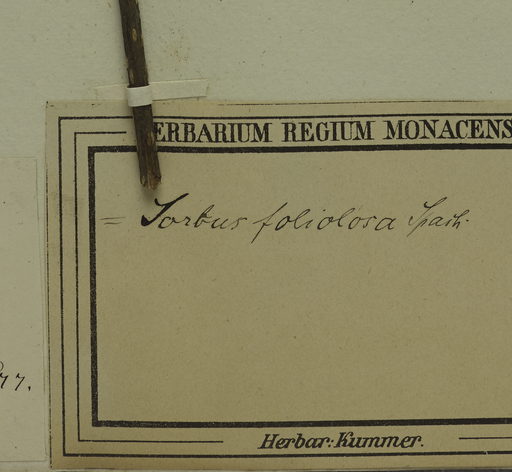 ERBARIUM REGIUM MONACENS
= Sorbus foliolosa Spach.
77.
Herbar: Kummer.